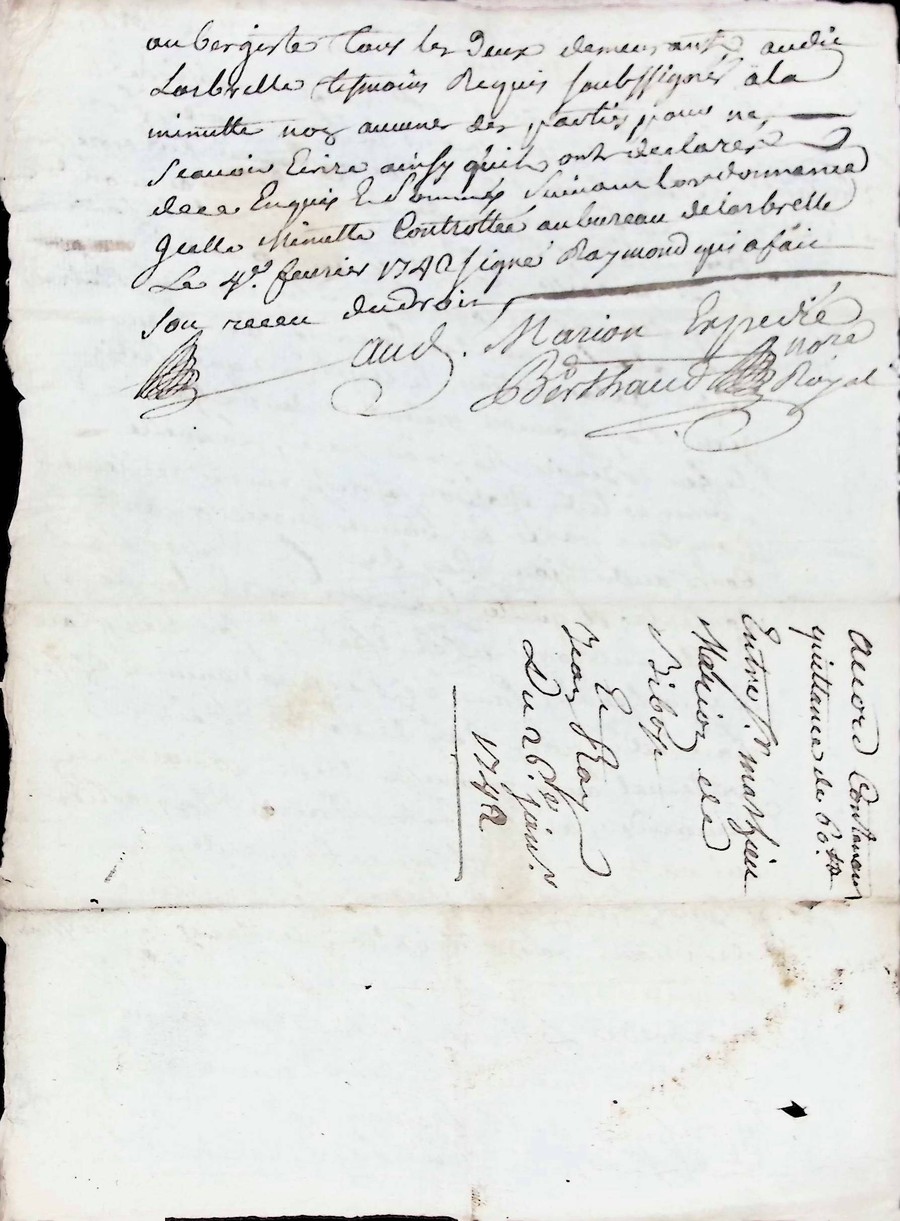 aubergiste tous les deux demeurant audit
Larbrelle tesmoins Requis soubssignés a la
minutte noz aucunes des parties pour ne
scavoir Ecrire ainsy quils ont declarés
de ce Enquis Et sommés suivant Lordonnance
Icelle Minutte Controllée au bureau de Larbrelle
Le 4e. fevrier 1742 signé Raymond qui a fait
son receu du droit
aud. Marion Expedié
Berthaud nore
Royal
accord Contenant
quittance de 60 tt
Entre Sr. mathieu
Marion de
Bibost
Et Ray
Du 26e janvr.
1742